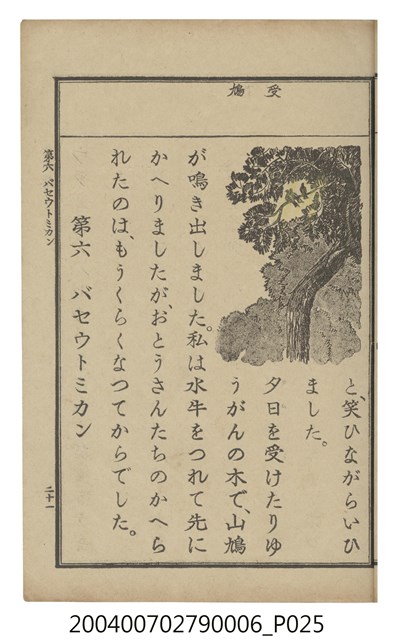 受 鳩
と、笑ひながらいひ
ました。
夕日を受けたりゆ
うがんの木で、山鳩
が鳴き出しました。私は水牛をつれて先に
かへりましたが、おとうさんたちのかへら
れたのは、もうくらくなつてからでした。
第六 バセウトミカン
第六 バセウトミカン
二十一
200400702790006_P025